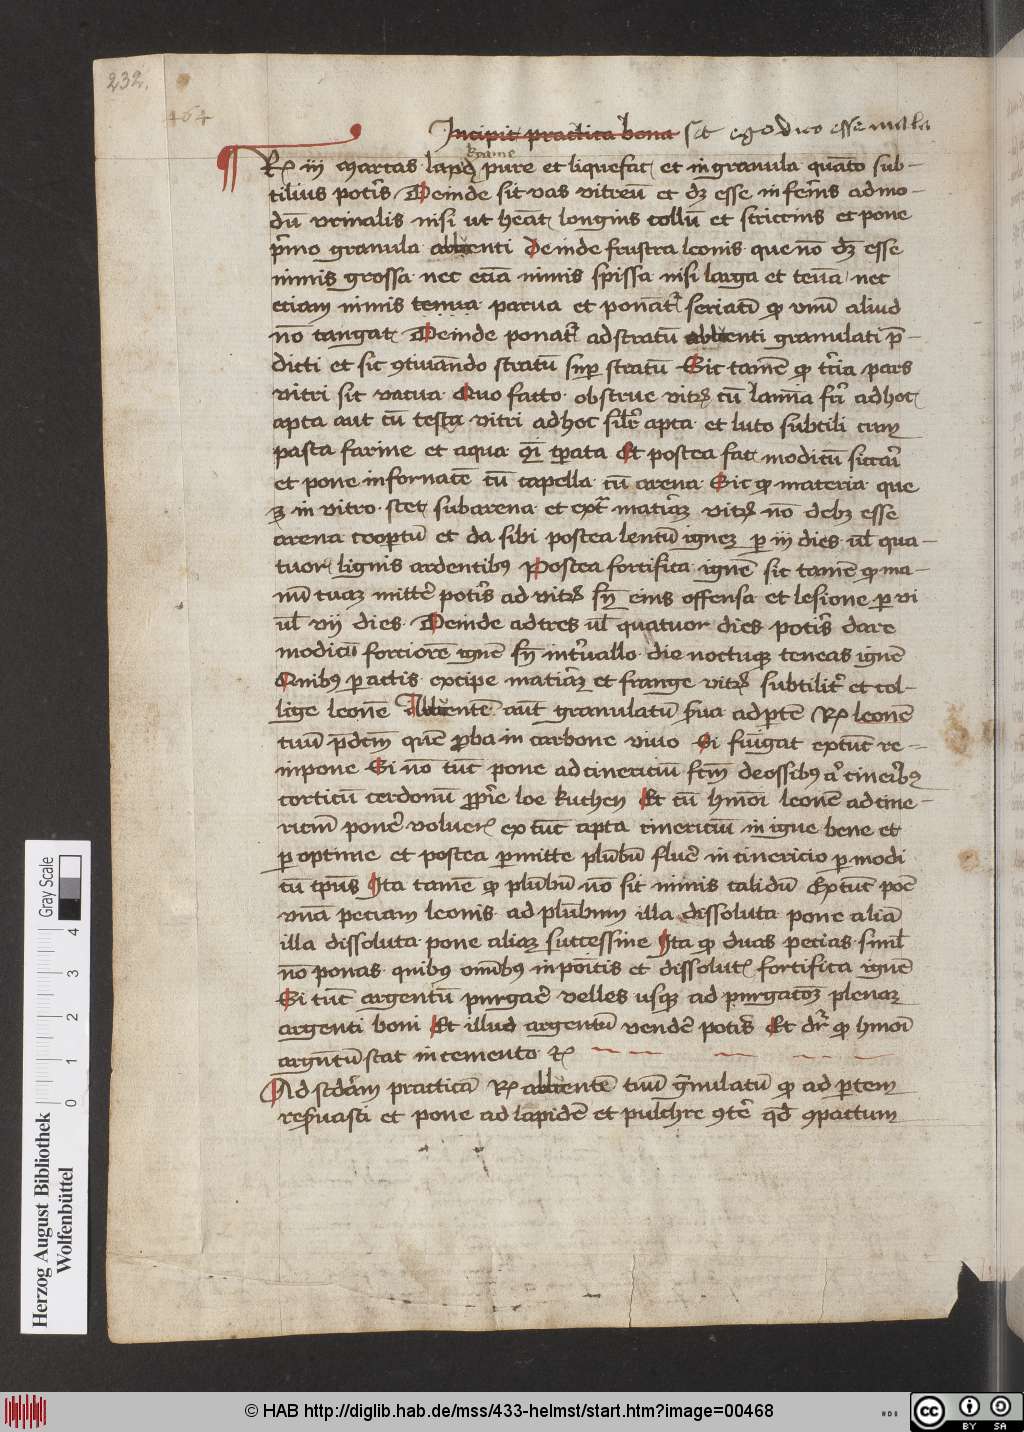 232.
464
Incipit practica bona sed ego dico esse nulla
R iij marcas pure et liquefac et ingranula quāto sub-
tilius potis Deinde sit vas vitreū et dz esse in
dū urinalis nisi ut heat longius collū et strictius et pone
pmo granula Deinde frustra leonis que nō dz esse
nimis grossa nec eciā nimis spissa nisi larga et tenua nec
eciam nimis tenua parua et ponāt seriatī qp vnū aliud
nō tangat Deinde ponat ad stratū granulati p-
dicti et sic 9tinuāndo stratū sup stratū Sic tamē qp tcia pars
vitri sit vacua Quo facto obstrue vitrū cū lamīa fri ad hoc
apta aut cū testa vitri ad hoc silr apta et luto subtili cum
pasta farine et aqua tpata Et postea fac modicū siccari
et pone in fornacē cū capella cū arena Sic qp materia que
in vitro stet sub arena et extra vitrū nō debz esse
arena cooptū et da sibi postea lentū ignez p iij dies ul qua-
tuor lignis ardentibus Postea fortifica ignē sic tamē qp ma-
nū tuaz mittē potis ad vitrū sn eius offensa et lesione p vi
ul vij dies Deinde ad tres ul quatuor dies potis dare
modicū fortiorē ignē sn intvallo die noctuqz teneas ignē
Quibus pactis excipe et frange vitrū subtilit et col-
lige leonē aut granulatū sua ad ptē R leonē
tuū pdcm quē pba in carbone viuo Si fumigat extunc re-
inpone Si nō tunc pone ad cinericiū fcm de ossibus cineribus
corticū cerdonū ppie loe kuchen Et cū hmoi leonē ad cine-
riciū ponē volueris extunc apta cinericiū in igne bene et
p optime et postea pmitte plūbū fluē in cinericio p modi
cū tpus Ita tamē qp plūbū nō sit nimis calidū Extunc
vnā peciam leonis ad plūbum illa dissoluta pone aliā
illa dissoluta pone aliaz successiue Ita qp duas pecias simul
nō ponas quibus omībus inpoitis et dissolutis fortifica ignē
Si tunc argentū purgare velles usqz ad purgacōez plenaz
argenti boni Et illud argentū vendē potis Et dr qp hmoi
argntū stat in cemento
Ad scdam practicā R tuū gnulatū qp ad ptem
resuasti et pone ad lapidē et pulchre 9tē qd 9pactum
Gray Scale
0 1 2 3 4
Herzog August Bibliothek
Wolfenbüttel
© HAB http://diglib.hab.de/mss/433-helmst/start.htm?image=00468
cc BY SA